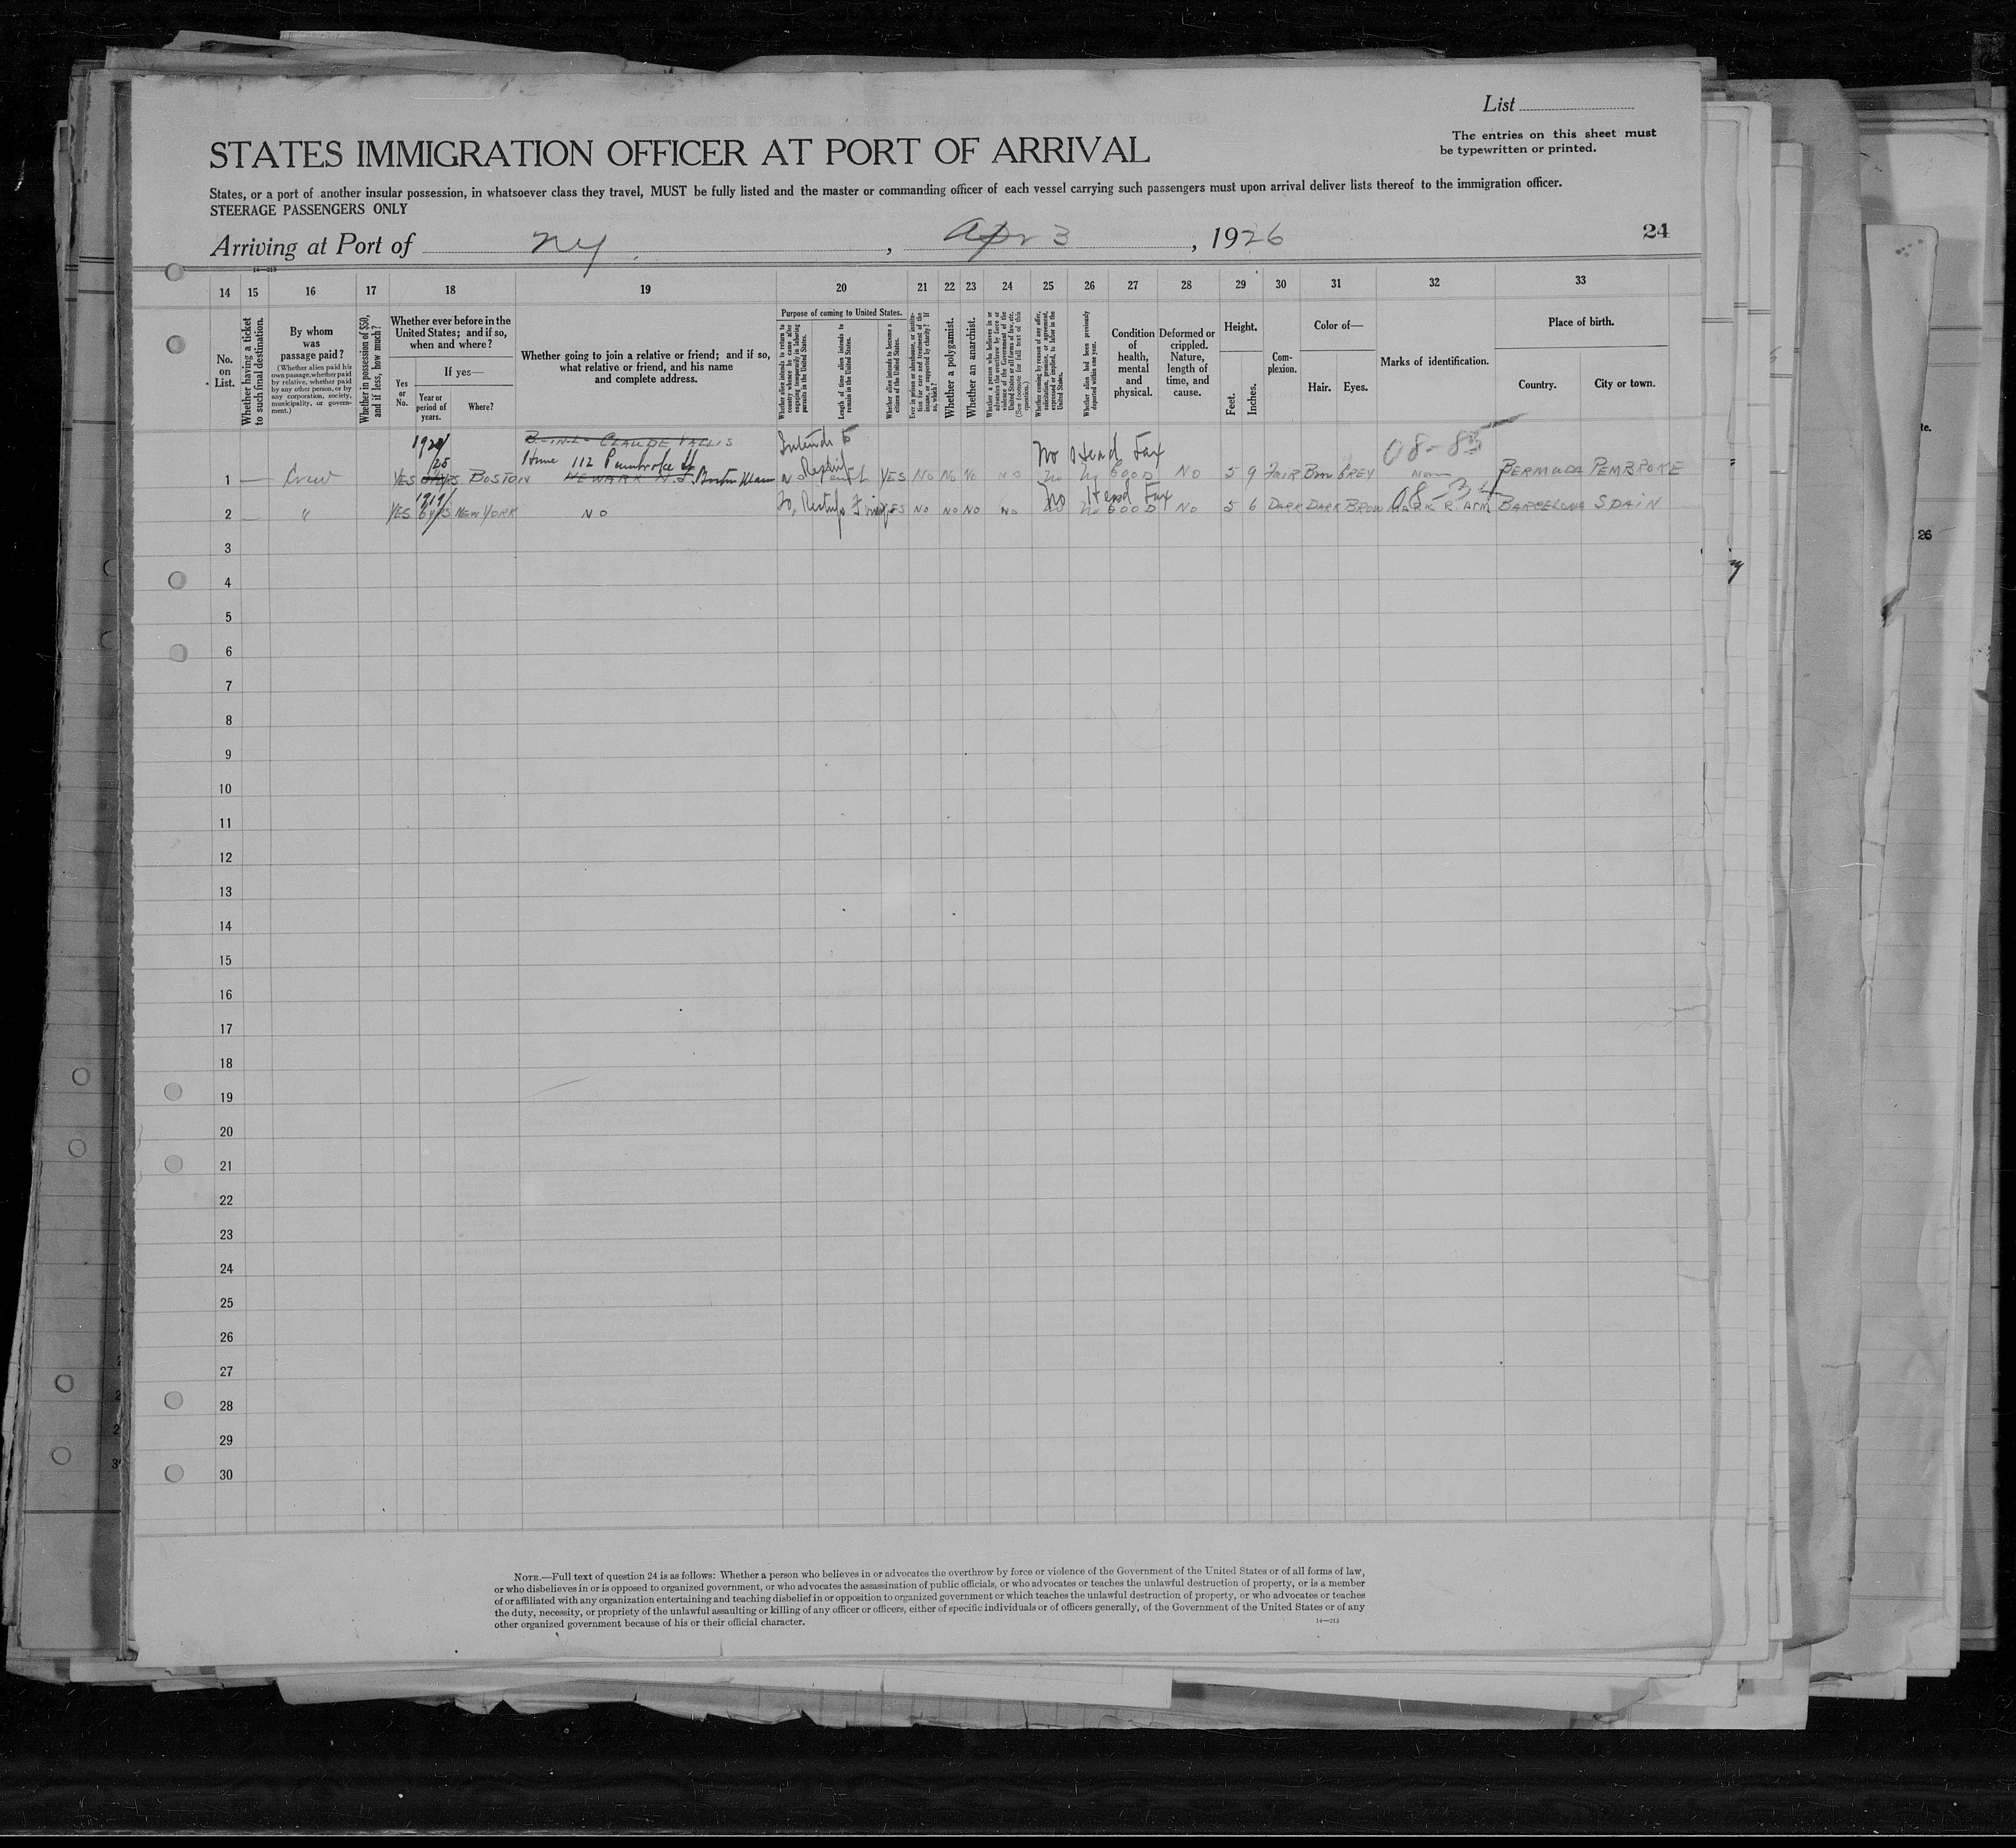 List
The entries on this sheet must
be typewritten or printed.
STATES IMMIGRATION OFFICER AT PORT OF ARRIVAL
States, or a port of another insular possession, in whatsoever class they travel, MUST be fully listed and the master or commanding officer of each vessel carrying such passengers must upon arrival deliver lists thereof to the immigration officer.
STEERAGE PASSENGERS ONLY
Arriving at Port of NY, Apr 3, 1926
24
14—213
14 15 16 17 18 19 20 21 22 23 24 25 26 27 28 29 30 31 32 33
No. on List.
Whether having a ticket to such final destination.
By whom was passage paid?
(Whether alien paid his own passage, whether paid by relative, whether paid by any other person, or by any corporation, society, municipality, or government.)
Whether in possession of $50, and if less, how much?
Whether ever before in the United States; and if so, when and where?
Yes or No.
If yes—
Year or period of years.
Where?
Whether going to join a relative or friend; and if so, what relative or friend, and his name and complete address.
Purpose of coming to United States.
Whether alien intends to return to country whence he came after engaging temporarily in laboring pursuits in the United States.
Length of time alien intends to remain in the United States.
Whether alien intends to become a citizen of the United States.
Ever in prison or almshouse, or institution for care and treatment of the insane, or supported by charity? If so, which?
Whether a polygamist.
Whether an anarchist.
Whether a person who believes in or advocates the overthrow by force or violence of the Government of the United States or all forms of law, etc. (See footnote for full text of this question.)
Whether coming by reason of any offer, solicitation, promise, or agreement, expressed or implied, to labor in the United States.
Whether alien had been previously deported within one year.
Condition of health, mental and physical.
Deformed or crippled. Nature, length of time, and cause.
Height.
Feet. Inches.
Complexion.
Color of—
Hair. Eyes.
Marks of identification.
Place of birth.
Country. City or town.
1924/25 B-in-L- CLAUDE VALLIS Intends to No Head Tax 08-85
Home 112 Pembroke St
1 — Crew YES YRS BOSTON NEWARK N.J. Boston Mass NO YES NO NO NO NO No No GOOD NO 5 9 FAIR Brn GREY None BERMUDA PEMBROKE
1919/ No Head Tax 08-3
2 — " YES 6 YRS NEW YORK NO YES NO NO NO No No No GOOD NO 5 6 DARK DARK BROW MARK R. ARM BARCELONA SPAIN
3
4
5
6
7
8
9
10
11
12
13
14
15
16
17
18
19
20
21
22
23
24
25
26
27
28
29
30
NOTE.—Full text of question 24 is as follows: Whether a person who believes in or advocates the overthrow by force or violence of the Government of the United States or of all forms of law,
or who disbelieves in or is opposed to organized government, or who advocates the assassination of public officials, or who advocates or teaches the unlawful destruction of property, or is a member
of or affiliated with any organization entertaining and teaching disbelief in or opposition to organized government or which teaches the unlawful destruction of property, or who advocates or teaches
the duty, necessity, or propriety of the unlawful assaulting or killing of any officer or officers, either of specific individuals or of officers generally, of the Government of the United States or of any
other organized government because of his or their official character.
14—213
te.
26